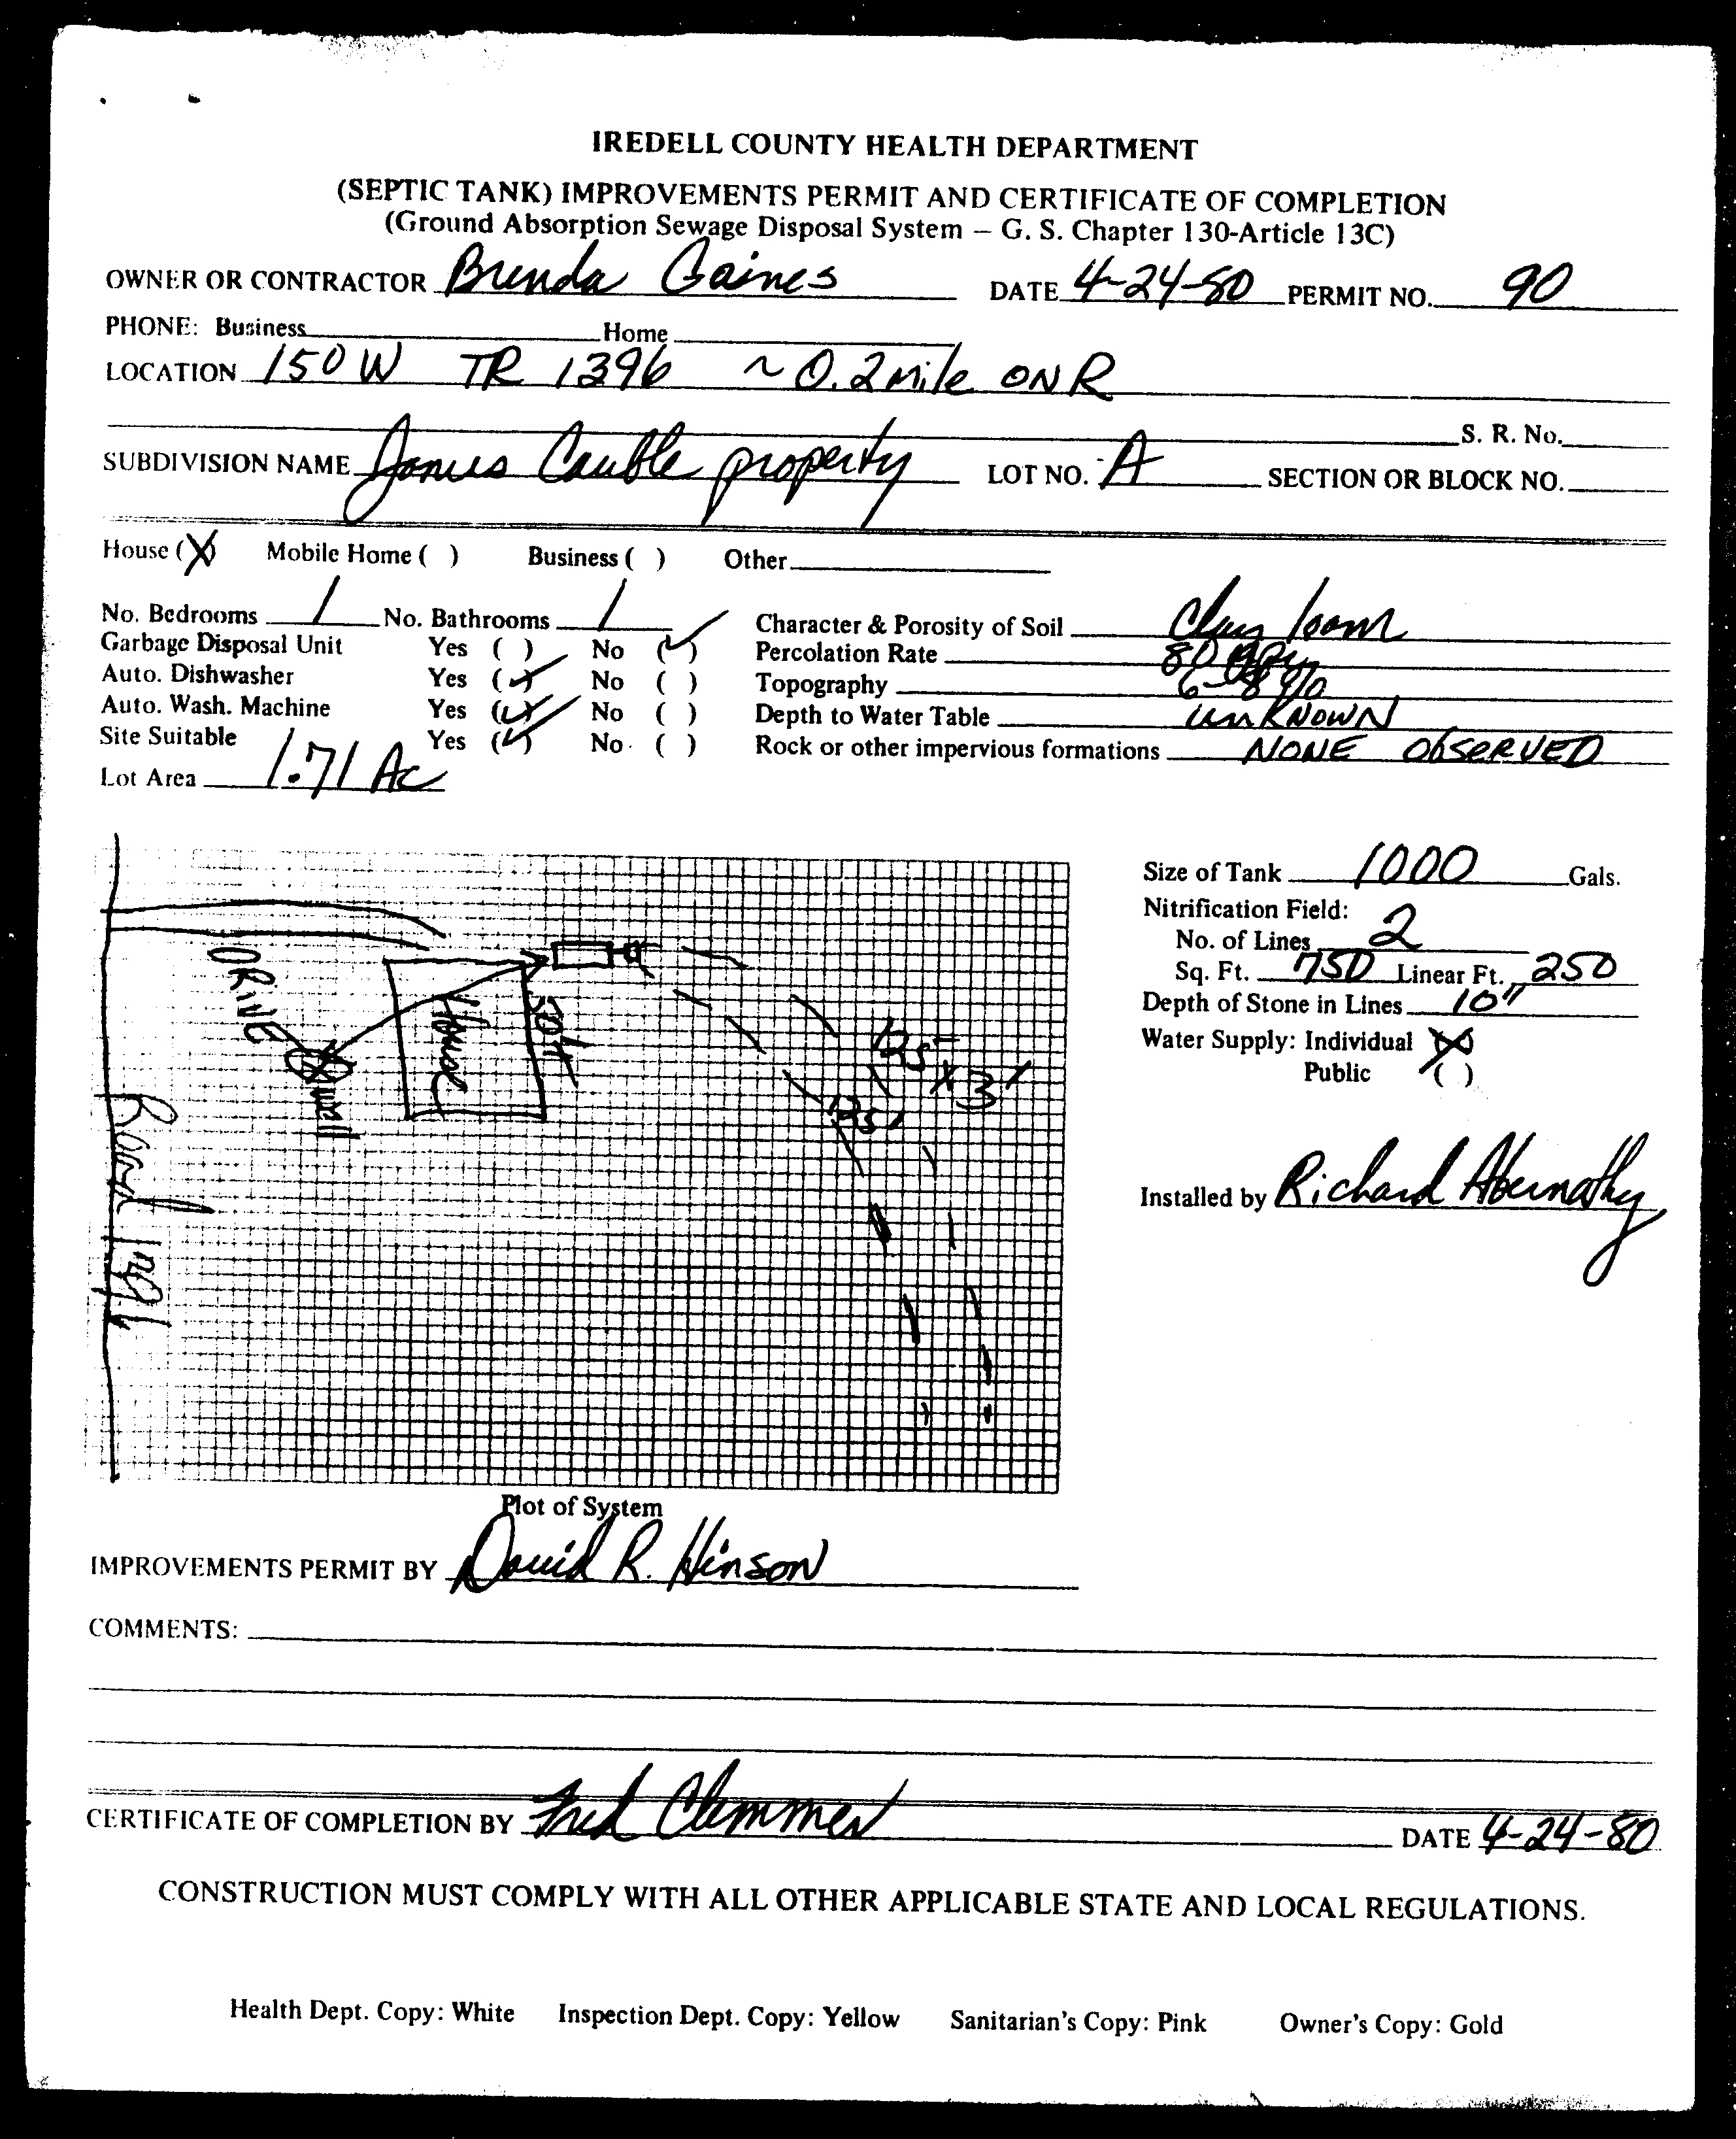 IREDELL COUNTY HEALTH DEPARTMENT
(SEPTIC TANK) IMPROVEMENTS PERMIT AND CERTIFICATE OF COMPLETION
(Ground Absorption Sewage Disposal System – G. S. Chapter 130-Article 13C)
OWNER OR CONTRACTOR Brenda Gaines DATE 4-24-80 PERMIT NO. 90
PHONE: Business Home
LOCATION 150 W TR 1396 ~ 0.2 mile ON R
S. R. No.
SUBDIVISION NAME James Cauble property LOT NO. A SECTION OR BLOCK NO.
House (X) Mobile Home ( ) Business ( ) Other
No. Bedrooms 1 No. Bathrooms 1 Character & Porosity of Soil Clay loam
Garbage Disposal Unit Yes ( ) No (✓) Percolation Rate 80
Auto. Dishwasher Yes (✓) No ( ) Topography 6-8%
Auto. Wash. Machine Yes (✓) No ( ) Depth to Water Table unKNOWN
Site Suitable Yes (✓) No ( ) Rock or other impervious formations NONE ObSERVED
Lot Area 1.71 Ac
Size of Tank 1000 Gals.
Nitrification Field:
No. of Lines 2
Sq. Ft. 750 Linear Ft. 250
Depth of Stone in Lines 10"
Water Supply: Individual (X)
Public ( )
Installed by Richard Abernathy
DRIVE
House
well
Road
125' x 3'
125'
Plot of System
IMPROVEMENTS PERMIT BY David R. Hinson
COMMENTS:
CERTIFICATE OF COMPLETION BY Fred Clemmer DATE 4-24-80
CONSTRUCTION MUST COMPLY WITH ALL OTHER APPLICABLE STATE AND LOCAL REGULATIONS.
Health Dept. Copy: White Inspection Dept. Copy: Yellow Sanitarian's Copy: Pink Owner's Copy: Gold